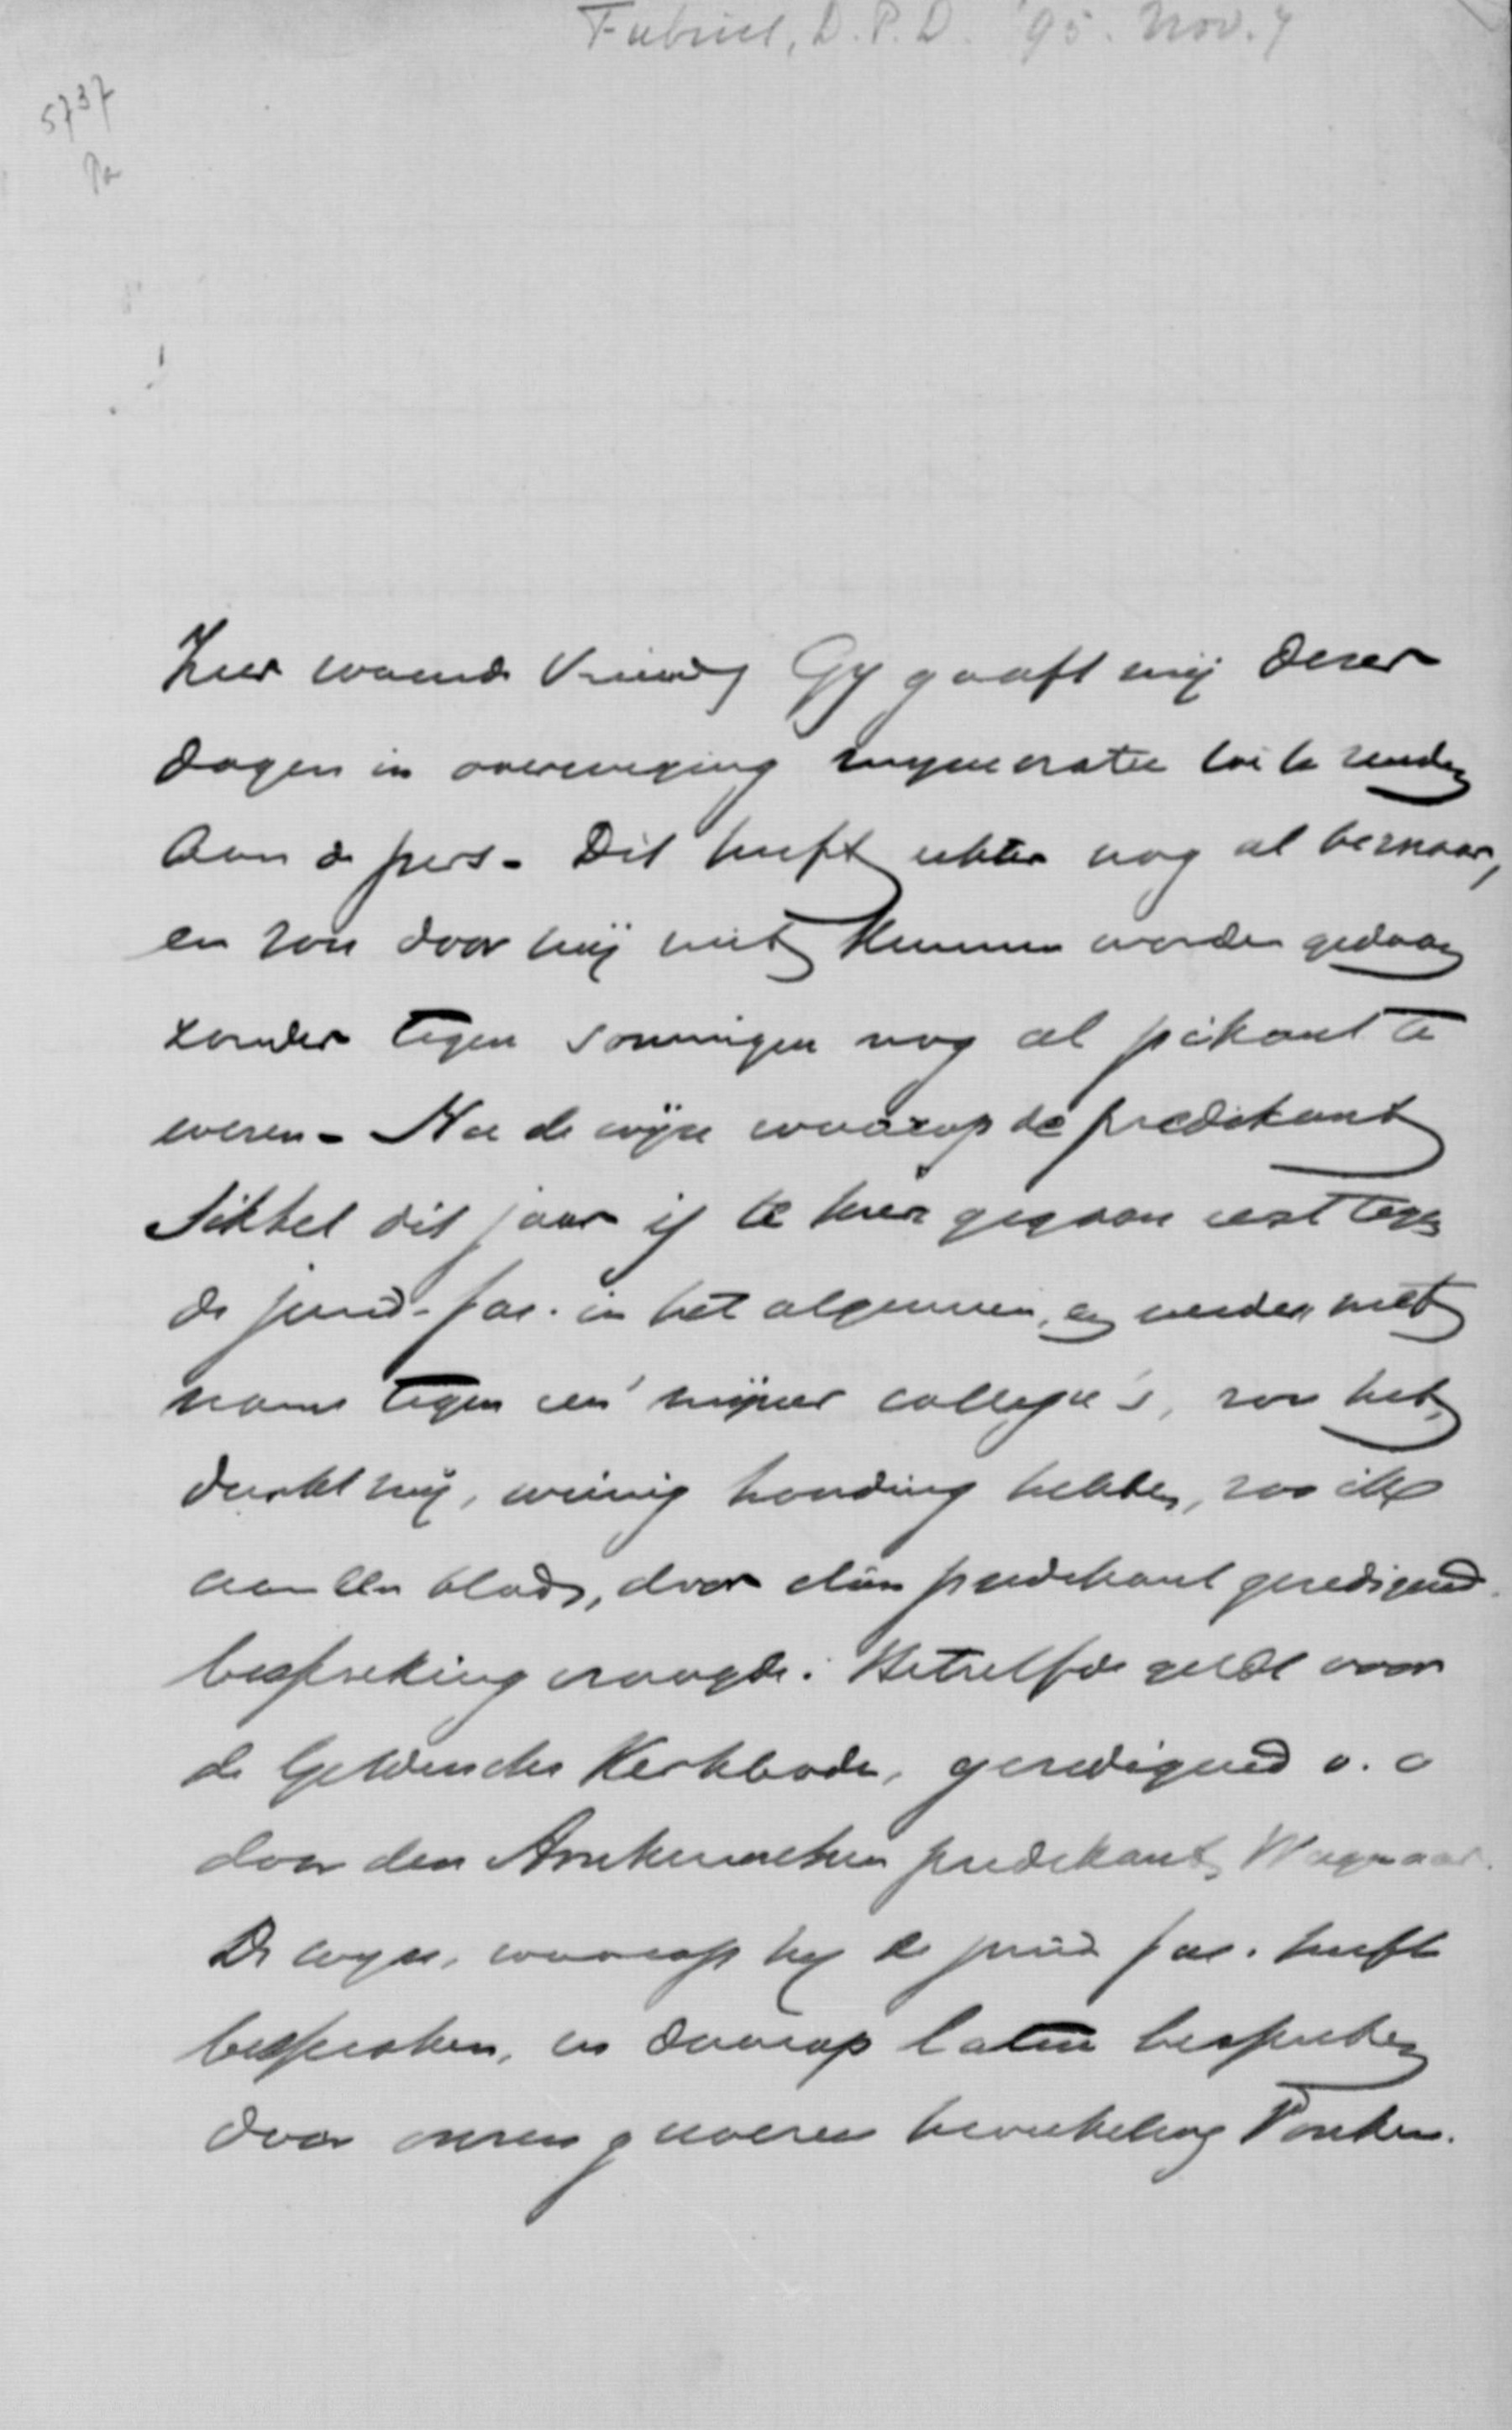 Fabius, D.P.D. '95. Nov. 7
5737
Pa
Zeer waarde Vriend, Gij gaaft mij dezer
dagen in overweging mijne oratie toe te zenden
aan de pers. Dit heeft echter nog al bezwaar,
en zou door mij niet kunnen worden gedaan
zonder tegen sommigen nog al pikant te
wezen. Na de wijze waarop de predikant
Sikkel dit jaar is te keer gegaan eerst tegen
de jurid. fac. in het algemeen, en verder met
name tegen een mijner collega's, zou het,
dunkt mij, weinig houding hebben, zoo ik
aan een blad, door dien predikant geredigeerd
bespreking vraagde. Hetzelfde geldt voor
de Geldersche Kerkbode, geredigeerd o. a
door den Arnhemschen predikant Wagenaar.
De wijze, waarop hij de jurid fac. heeft
besproken, en daarop laten bespreken
door onzen gewezen kweekeling